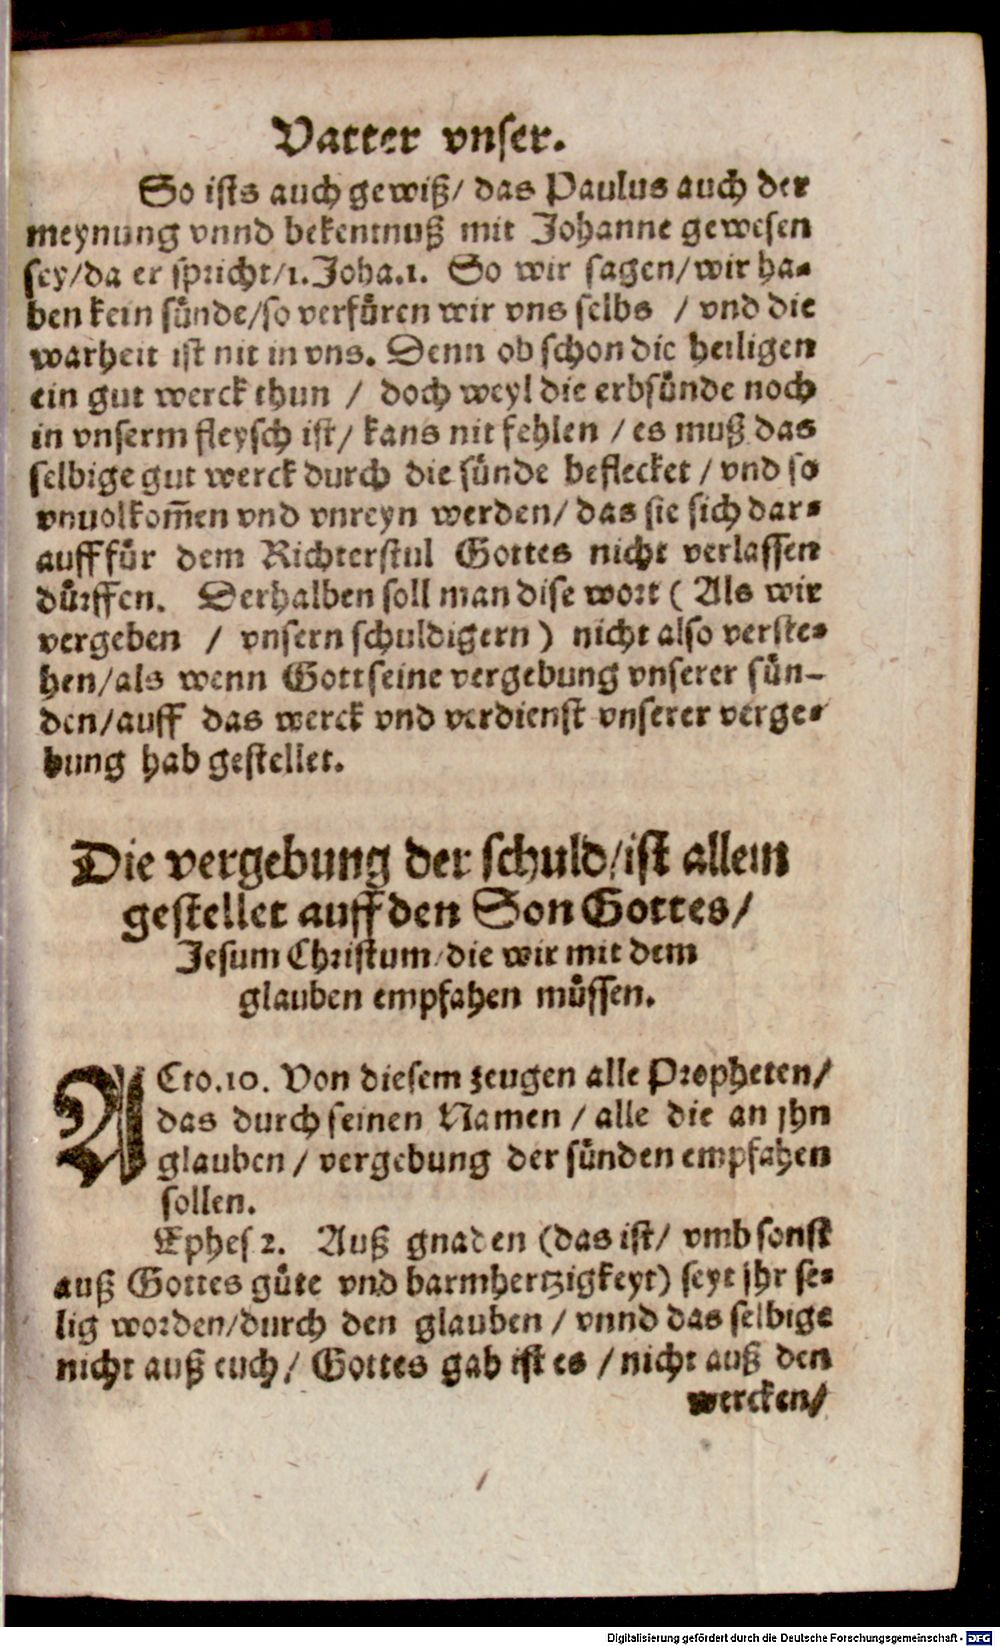 Vatter vnser.
So ists auch gewiß/ das Paulus auch der
meynung vnnd bekentnuß mit Johanne gewesen
sey/da er spricht/1.Joha.1. So wir sagen/wir ha-
ben kein sünde/so verfüren wir vns selbs / vnd die
warheit ist nit in vns. Denn ob schon die heiligen
ein gut werck thun / doch weyl die erbsünde noch
in vnserm fleysch ist/ kans nit fehlen / es muß das
selbige gut werck durch die sünde beflecket / vnd so
vnuolkom̃en vnd vnreyn werden/ das sie sich dar-
auff für dem Richterstul Gottes nicht verlassen
dürffen. Derhalben soll man dise wort ( Als wir
vergeben / vnsern schuldigern ) nicht also verste-
hen/als wenn Gott seine vergebung vnserer sün-
den/auff das werck vnd verdienst vnserer verge-
bung hab gestellet.
Die vergebung der schuld/ist allein
gestellet auff den Son Gottes/
Jesum Christum/die wir mit dem
glauben empfahen müssen.
ACto.10. Von diesem zeugen alle Propheten/
das durch seinen Namen / alle die an jhn
glauben / vergebung der sünden empfahen
sollen.
Ephes 2. Auß gnaden (das ist/ vmb sonst
auß Gottes güte vnd barmhertzigkeyt) seyt jhr se-
lig worden/durch den glauben / vnnd das selbige
nicht auß euch/ Gottes gab ist es / nicht auß den
wercken/
Digitalisierung gefördert durch die Deutsche Forschungsgemeinschaft - DFG